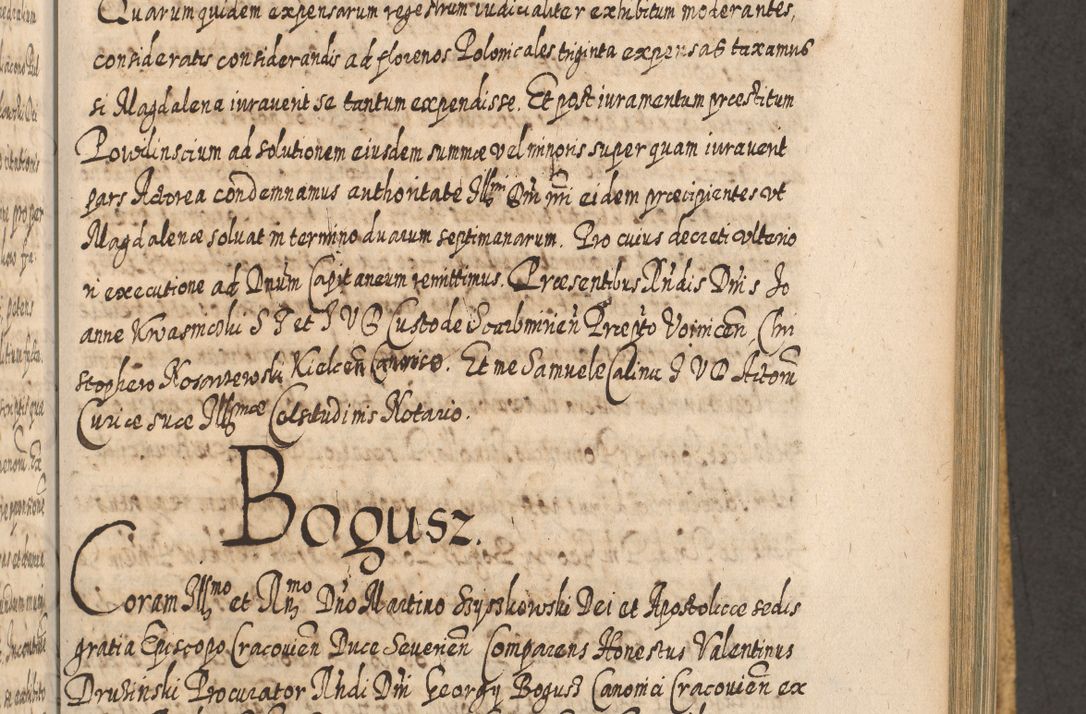 Quarum quidem expensarum regestrum iudicialiter exhibitum moderantes,
consideratis considerandis ad florenos Polonicales triginta expensas taxamus
si Magdalena iuraverit se tantum expendisse. Et post iuramentum præstitum
Powilinscium ad solutionem eiusdem summæ vel minoris super quam iuraverit
pars Actorea condemnamus authoritate Illmi Dni nri eidem præcipientes ut
Magdalenæ solvat in termino duarum septimanarum. Pro cuius decreti ulterio
ri executione ad Dnum Capitaneum remittimus. Præsentibus Rndis Dnis Jo
anne Kwasnicki S T et I V D Custode Scarbmirien Præpto Voinicen, Chri
stophero Kosarzewski Kielcen Canonico. Et me Samuele Calinu I V D Actorum
Curiæ suæ Illmæ Celsitudinis Notario.
Bogusz.
Coram Illmo et Rnmo Dno Martino Szyszkowski Dei et Apostolicæ sedis
gratia Episcopo Cracovien Duce Severien Comparens Honestus Valentinus
Druzinski Procurator Rhdi Dni Georgy Bogusz Canonici Cracovien ex